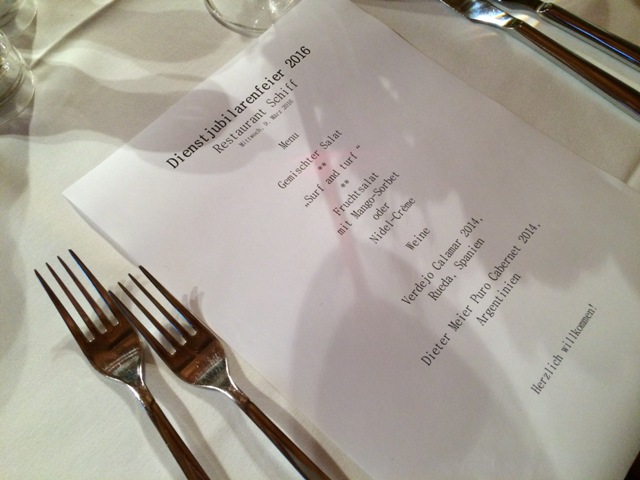 Dienstjubilarenfeier 2016
Restaurant Schiff
Mittwoch, 9. März 2016
Menu
Gemischter Salat
**
„Surf and turf"
**
Fruchtsalat
mit Mango-Sorbet
oder
Nidel-Crème
Weine
Verdejo Calamar 2014,
Rueda, Spanien
Dieter Meier Puro Cabernet 2014,
Argentinien
Herzlich willkommen!